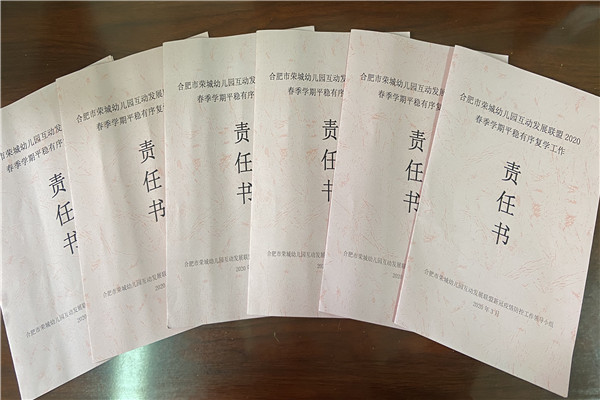 合肥市荣城幼儿园互动发
春季学期平稳有序
责
任
书
合肥市荣城幼儿园互动发
2020
合肥市荣城幼儿园互动发展
春季学期平稳有序复学
责
任
书
合肥市荣城幼儿园互动发展联
2020
合肥市荣城幼儿园互动发
春季学期平稳有序复
责
任
书
合肥市荣城幼儿园互动发展
2020
合肥市荣城幼儿园互动发展
春季学期平稳有序复学
责
任
书
合肥市荣城幼儿园互动发展联
2020
合肥市荣城幼儿园互动发展
春季学期平稳有序复学工
责
任
书
合肥市荣城幼儿园互动发展联
2020
合肥市荣城幼儿园互动发展联盟 2020
春季学期平稳有序复学工作
责
任
书
合肥市荣城幼儿园互动发展联盟新冠疫情防控工作领导小组
2020 年 3 月